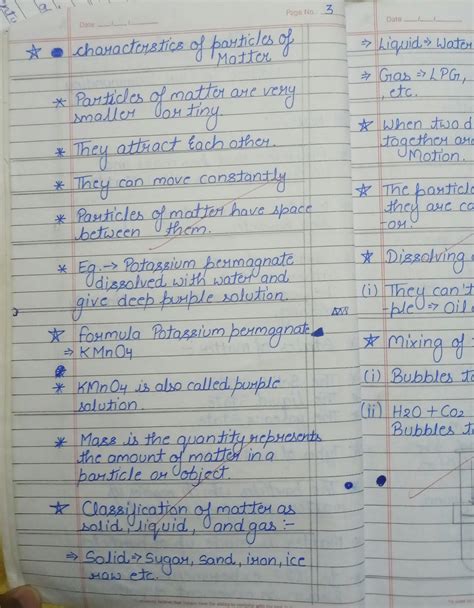 Date
Page No. 3
☆ ● characterstics of particles of
Matter
* Particles of matter are very
smaller or tiny.
* They attract Each other.
* They can move constantly
* Particles of matter have space
between them.
* Eg. → Potassium permagnate
dissolved with water and
give deep purple solution.
☆ formula Potassium permagnate
⇒ KMnO4
* KMnO4 is also called purple
solution.
* Mass is the quantity represents
the amount of matter in a
particle or object.
☆ Classification of matter as
solid, liquid, and gas :-
⇒ Solid ⇒ Sugar, sand, iron, ice
raw etc.
Date
⇒ Liquid ⇒ Water
⇒ Gas ⇒ LPG,
, etc.
☆ When two d
together are
Motion.
☆ The particle
they are ca
-or.
☆ Dissolving
(i) They can't
-ple ⇒ Oil
☆ Mixing of
(i) Bubbles to
(ii) H2O + CO2
Bubbles to